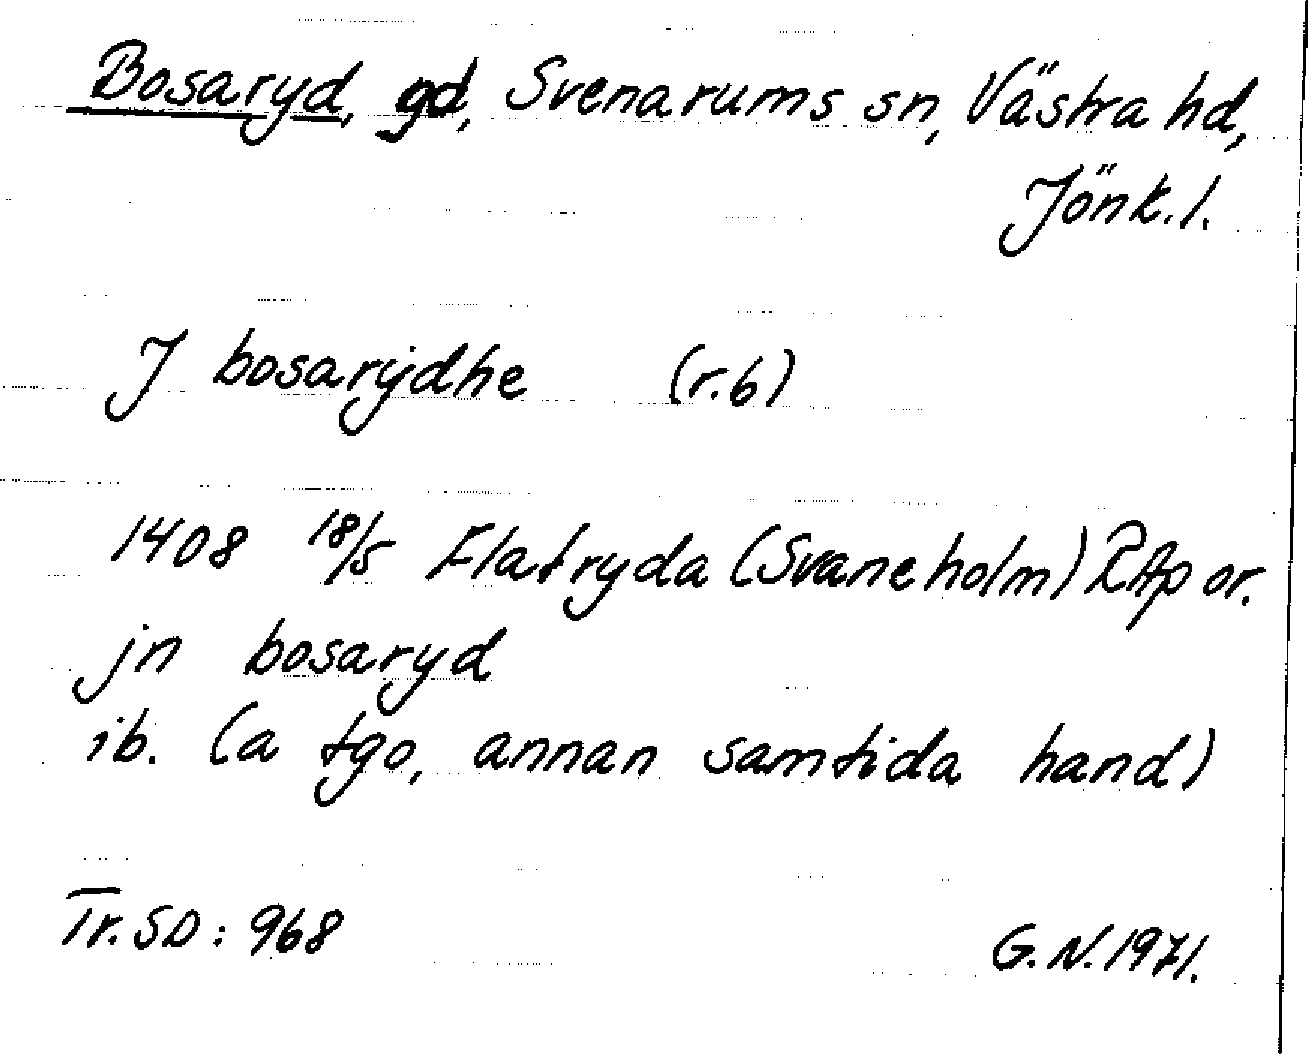 Bosaryd, gd, Svenarums sn, Västra hd,
Jönk. l.
J bosarÿdhe (r.6)
1408 18/5 Flatryda (Svaneholm) RAp or.
jn bosaryd
ib. (a tgo, annan samtida hand)
Tr. SD: 968
G. N. 1971.